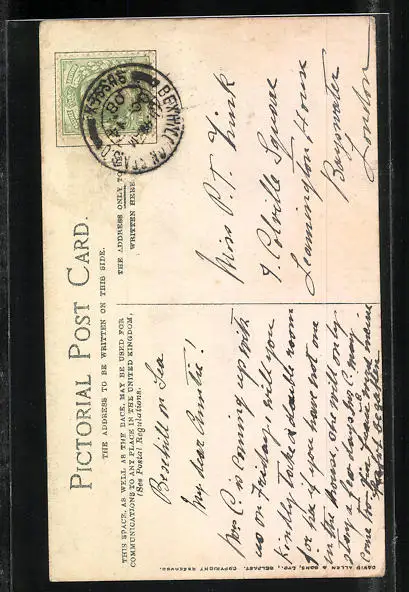 PICTORIAL POST CARD.
THE ADDRESS TO BE WRITTEN ON THIS SIDE.
THIS SPACE, AS WELL AS THE BACK, MAY BE USED FOR
COMMUNICATIONS TO ANY PLACE IN THE UNITED KINGDOM,
(See Postal Regulations.
THE ADDRESS ONLY TO BE
WRITTEN HERE
BEXHILL ON SEA
SUSSEX
Bexhill on Sea
My dear Auntie!
Mrs C. is coming up with
us on Friday, will you
kindly take a double room
for me if you have not one
in the house, she will only
stay a few days. I may
come too
Miss P. T.
7 Colville Square
Leamington House
Bayswater
London
DAVID ALLEN & SONS, LTD., BELFAST. COPYRIGHT RESERVED.